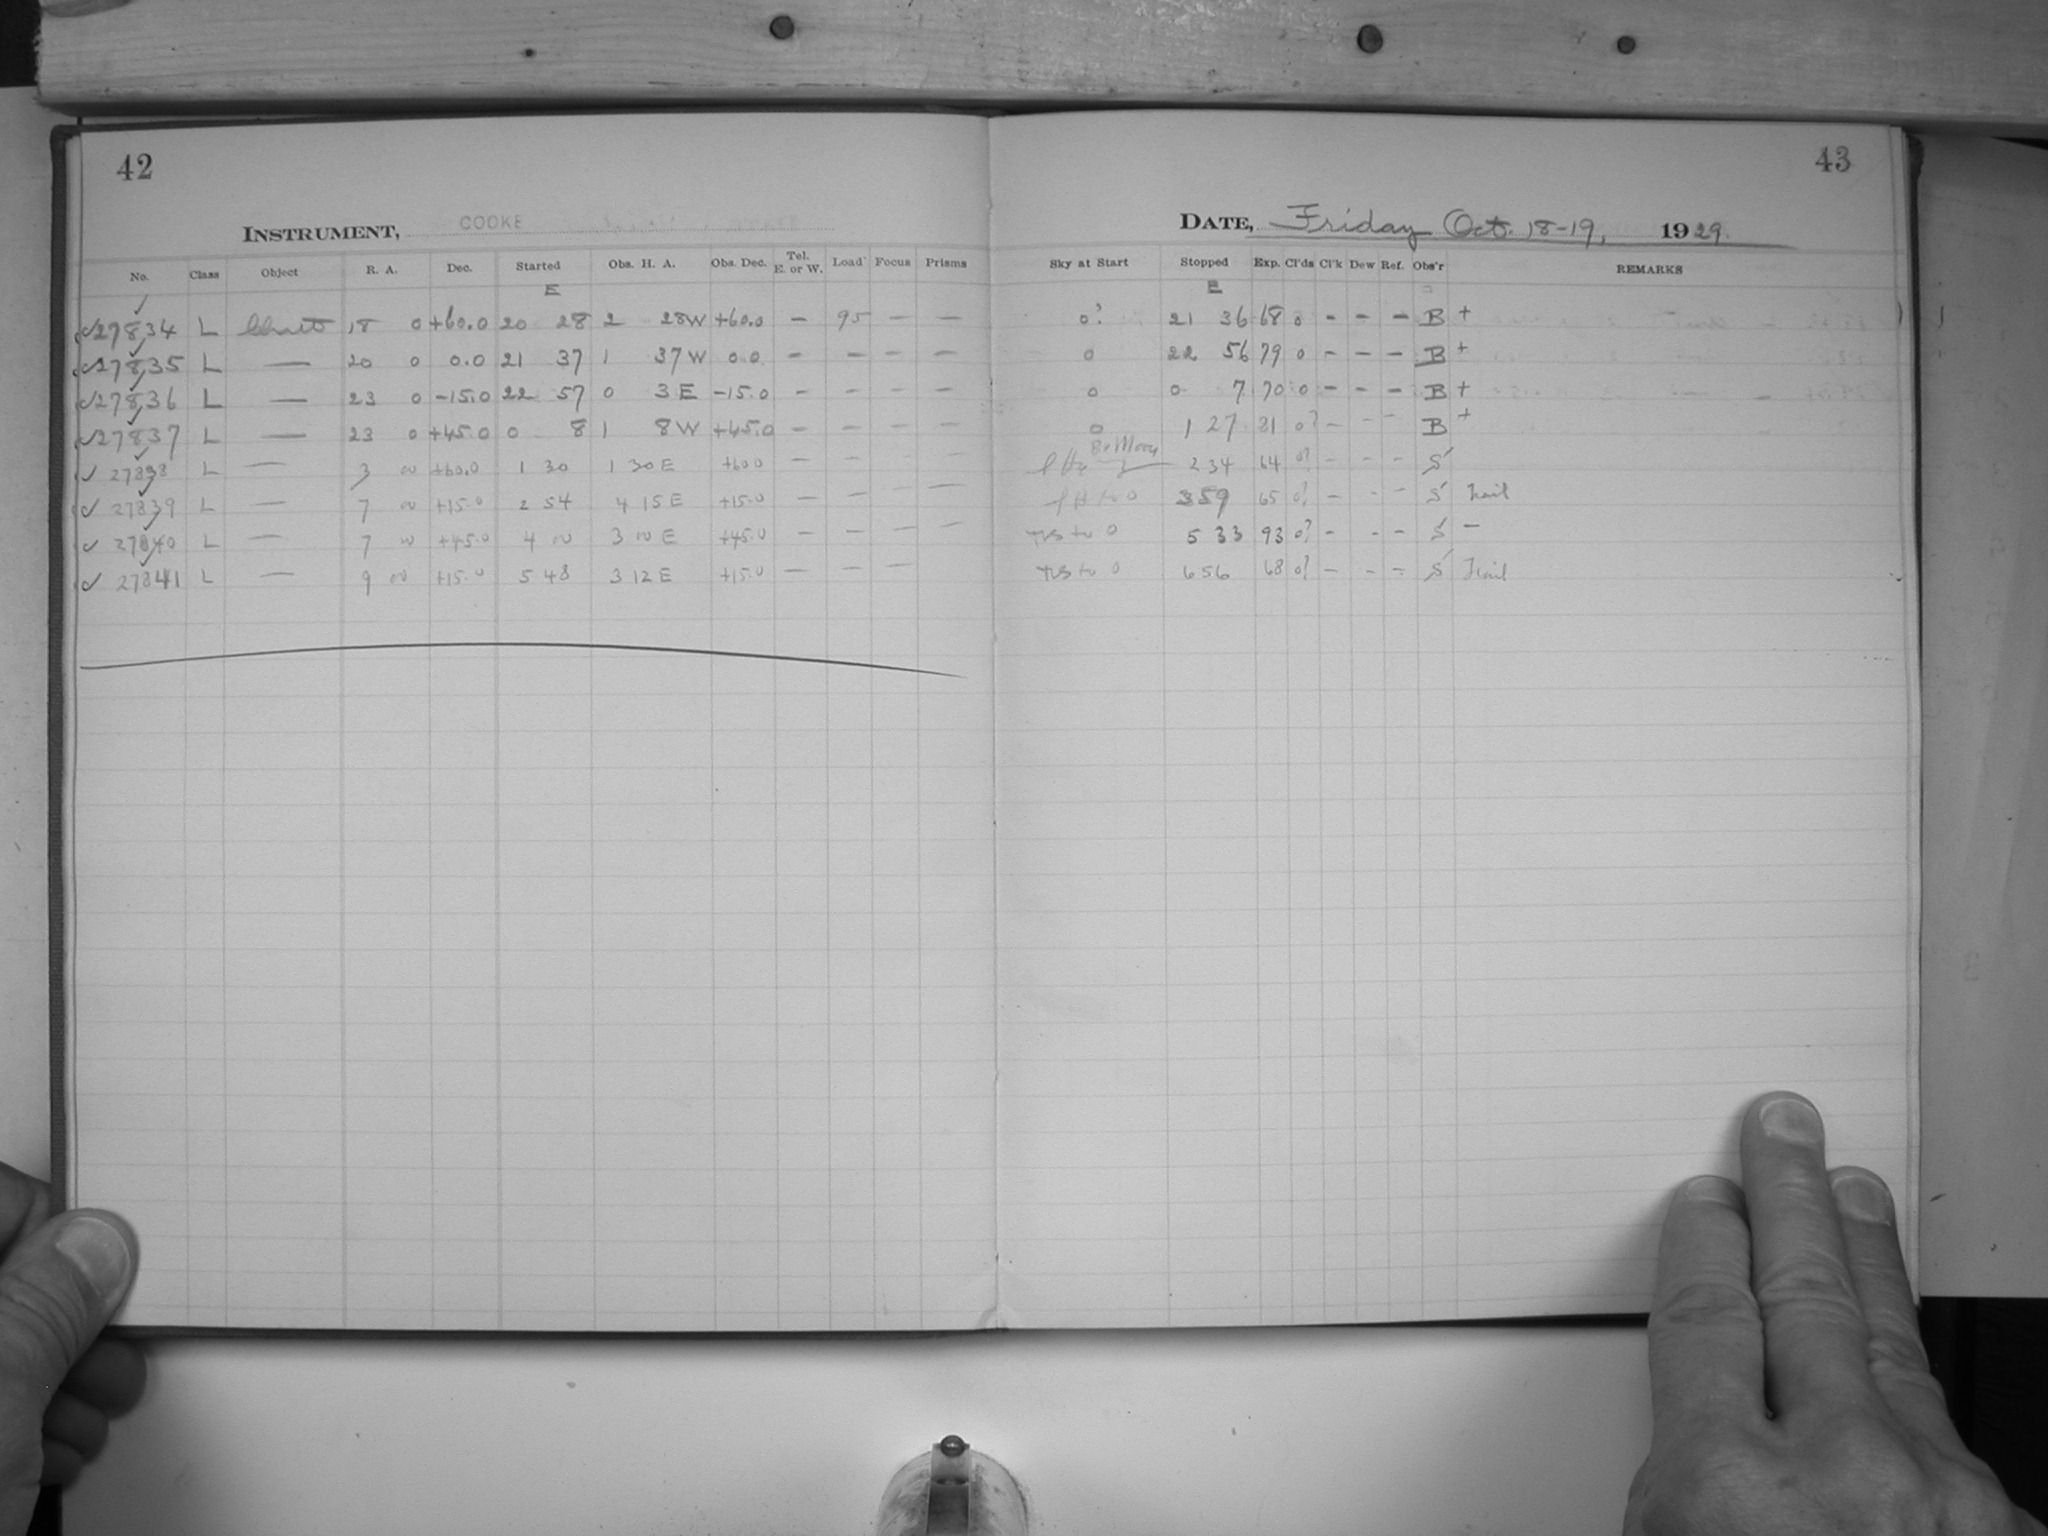 42
INSTRUMENT, COOKE
No. Class Object R. A. Dec. Started Obs. H. A. Obs. Dec. Tel. E. or W. Load Focus Prisms
E
27834 L Chart 18 0 +60.0 20 28 2 28W +60.0 — 95 — —
27835 L — 20 0 0.0 21 37 1 37W 0.0 — — — —
27836 L — 23 0 -15.0 22 57 0 3E -15.0 — — — —
27837 L — 23 0 +45.0 0 8 1 8W +45.0 — — — —
27838 L — 3 00 +60.0 1 30 1 30E +60.0 — — — —
27839 L — 7 00 +15.0 2 54 4 15E +15.0 — — — —
27840 L — 7 00 +45.0 4 00 3 00E +45.0 — — — —
27841 L — 9 00 +15.0 5 48 3 12E +15.0 — — — —
43
DATE, Friday Oct. 18-19, 1929.
Sky at Start Stopped Exp. Cl'ds Cl'k Dew Ref. Obs'r REMARKS
E
0? 21 36 68 0 - - - B +
0 22 56 79 0 - - - B +
0 0 7 70 0 - - - B +
0 1 27 81 0? - - - B +
Br Moon 2 34 64 0? - - - S
to 0 359 65 0? - - - S Trail
to 0 5 33 93 0? - - - S —
to 0 656 68 0? - - - S Trail